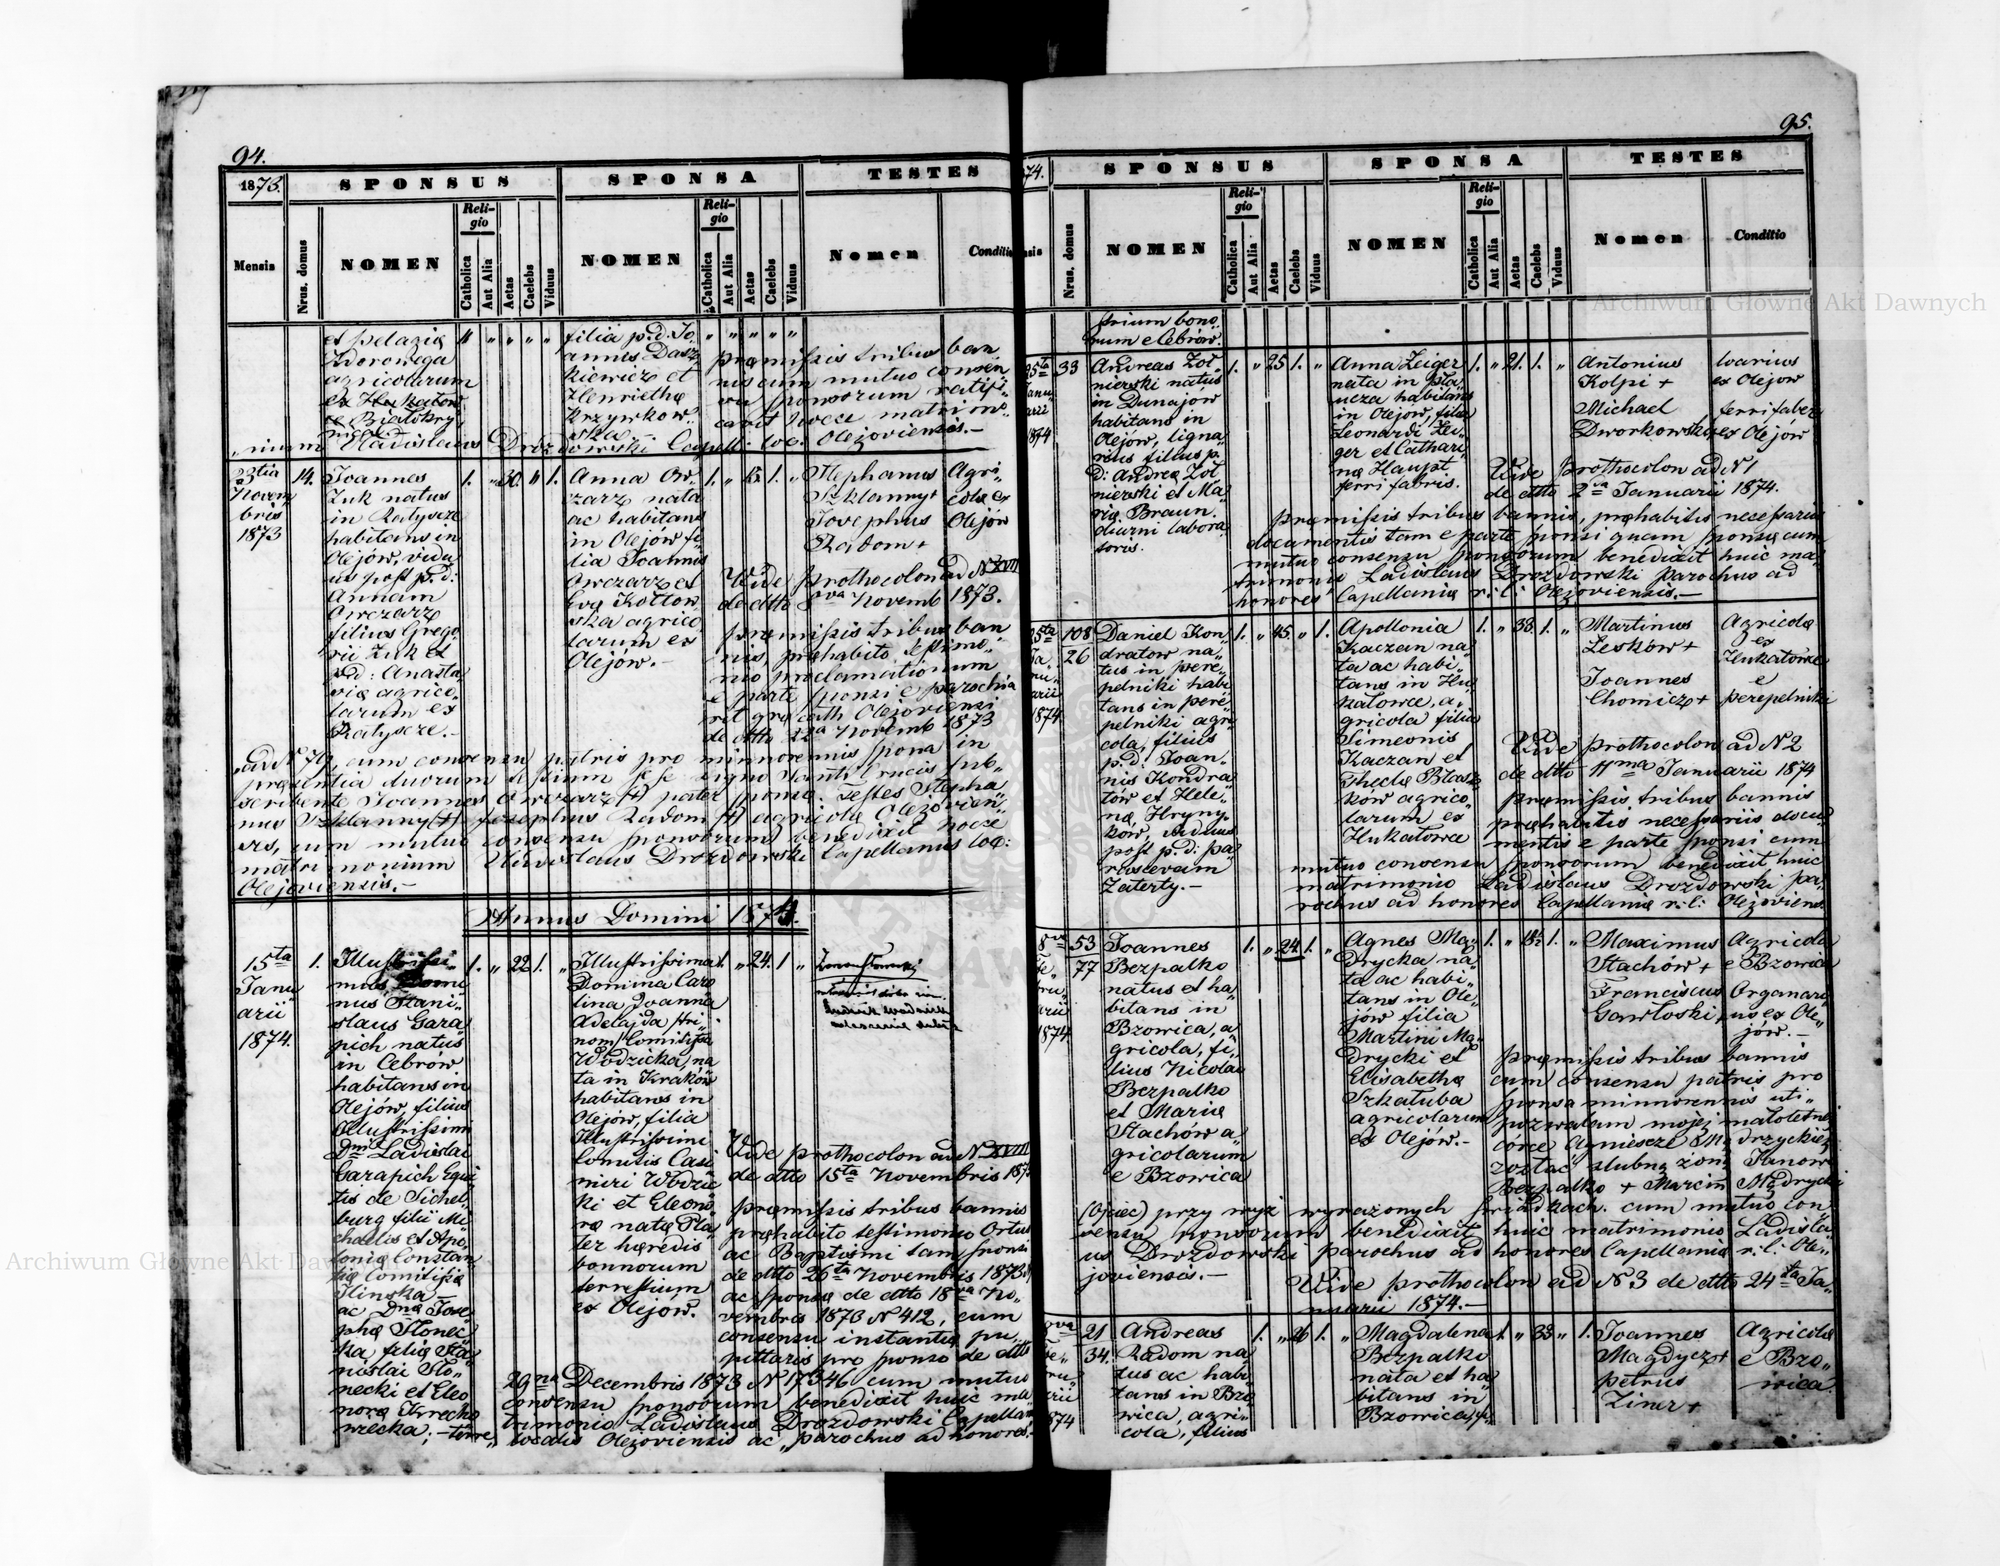 94.
1873.
SPONSUS
SPONSA
TESTES
Mensis
Nrus. domus
NOMEN
Religio
Catholica
Aut Alia
Aetas
Caelebs
Viduus
NOMEN
Religio
Catholica
Aut Alia
Aetas
Caelebs
Viduus
Nomen
Conditio
et Pelagiæ
agricolarum
filia p.d. Jo„
annis Dasz„
kiewicz et
Henriethæ
Krzywkow„
ska.—
præmissis tribus ban„
nis cum mutuo consen„
su sponsorum ratifi„
cavit hocce matrimo„
„nium Vladislaus Drozdowski Capell: loc: Olejoviensis.—
23tia
Novem
bris
1873
14.
Joannes
Żuk natus
in Ratyszcze
habitans in
Olejów, vidu„
us post p.d:
Annam
Owczarz
filius Grego„
rii Żuk et
p.d: Anasta„
siæ agrico„
larum ex
Ratyszcze.—
1. „ 30. „ 1.
Anna Ow„
czarz nata
ac habitans
in Olejów fi„
lia Joannis
Owczarz et
Evæ Kottow„
ska agrico„
larum ex
Olejów.—
Stephanus
Szklanny+
Josephus
Radom+
Agri„
colæ ex
Olejów
Vide prothocolon ad N XVII
de dtto 8va Novemb 1873.
præmissis tribus ban„
nis, præhabito testimo„
nio proclamationum
e parte sponsi e parochia
rit. græ cath Olejoviensi
de dtto 22a Novemb 1873
„ad N 79, cum consensu patris pro minnorennis sponsa in
præsentia duorum testium sese signo Sanctæ Crucis sub„
scribente Joannes Owczarz (+) pater sponsæ. Testes Stepha„
nus Szklanny (+) Josephus Radom (+) agricolæ Olejovien„
ses, cum mutuo consensu sponsorum benedixit hocce
matrimonium Vladislaus Drozdowski Capellanus loc:
Olejoviensis.—
Annus Domini 1874.
15ta
Janu
arii
1874.
1.
Illustrissi„
mus Domi„
nus Stani„
slaus Gara„
pich natus
in Cebrów
habitans in
Olejów, filius
Illustrissimi
Dni Ladislai
Garapich Equi„
tis de Sichel„
burg filii Mi„
chaelis et Apo„
loniæ Constan„
tiæ Comitissæ
Ilinska —
ac Dnæ Jose„
phæ Słonec„
ka, filiæ Sta„
nislai Sło„
necki et Eleo„
noræ Krecho„
wiecka; —terre„
1. „ 22. 1. „
Illustrissima
Domina Caro„
lina Joanna
Adelajda tri„
nom/ Comitissa
Wodzicka, na„
ta in Kraków
habitans in
Olejów, filia
Illustrissimi
Comitis Casi„
miri Wodzic„
ki et Eleono„
ræ natæ Pla„
ter hæredis
bonnorum
terrestium
ex Olejów.
1. „ 24. 1. „
Vide prothocolon ad N XVIII
de dtto 15ta Novembris 1873
præmissis tribus bannis
præhabito testimonio Ortus
ac Baptismi tam sponsi
de dtto 26ta Novembris 1873
ac sponsæ de dtto 18va No„
vembris 1873 N 412, cum
consensu instantiæ pu„
pillaris pro sponso de dtto
29na Decembris 1873 N 17346 cum mutuo
consensu sponsorum benedixit huic ma„
trimonio Ladislaus Drozdowski Capellan„
localis Olejoviensis ac „parochus ad honores.—
95.
74.
SPONSUS
SPONSA
TESTES
Nrus. domus
NOMEN
Religio
Catholica
Aut Alia
Aetas
Caelebs
Viduus
NOMEN
Religio
Catholica
Aut Alia
Aetas
Caelebs
Viduus
Nomen
Conditio
strium bono„
rum e Cebrów.
25ta
Janu
arii
1874
33
Andreas Żoł„
nierski natus
in Dunajów
habitans in
Olejów, ligna„
rius filius p.
d: Andreæ Żoł„
nierski et Ma„
riæ Braun.
diurni labora„
toris.
1. „ 25 1. „
Anna Zeiger
nata in Pła„
ucza habitans
in Olejów, filia
Leonardi Zei„
ger et Cathari„
næ Haupt
ferri fabris.
1. „ 21. 1. „
Antonius
Kolpi +
Michael
Dworkowski
ex Olejów
ferri faber
ex Olejów
Vide prothocolon ad N 1
de dtto 2da Januarii 1874.
præmissis tribus bannis, præhabitis necessariis
documentis tam e parte sponsi quam sponsæ cum
mutuo consensu sponsorum benedixit huic ma„
trimonio Ladislaus Drozdowski parochus ad
honores Capellaniæ r: l: Olejoviensis.—
25ta
Ja„
nu„
arii
1874
108
26
Daniel Kon„
dratow na„
tus in Pere„
pelniki habi
tans in Pere„
pelniki agri„
cola, filius
p.d. Joan„
nis Kondra„
tów et Hele„
næ Hryny„
ków, viduus
post p.d: Pa„
rascevam
Zaterty.—
1. „ 45. „ 1.
Apollonia
Kaczan na„
ta ac habi„
tans in Hu„
kałowce, a„
gricola filia
Simeonis
Kaczan et
Theclæ Błasz„
ków agrico„
larum ex
Hukałowce
1. „ 38. 1. „
Martinus
Leśków+
Joannes
Chomicz+
Agricolæ
ex
Hukałowce
e
Perepelniki
Vide prothocolon ad N 2
de dtto 11ma Januarii 1874
præmissis tribus bannis
præhabitis necessariis docu„
mentis e parte sponsi cum
mutuo consensu sponsorum benedixit huic
matrimonio Ladislaus Drozdowski pa„
rochus ad honores Capellaniæ r: l: Olejoviens.
8va
Fe„
bru„
arii
1874
53
77
Joannes
Bezpalko
natus et ha„
bitans in
Bzowica, a„
gricola, fi„
lius Nicolai
Bezpalko
et Mariæ
Stachów a„
gricolarum
e Bzowica
1. „ 24. 1. „
Agnes Ma„
drycka na„
ta ac habi„
tans in Ole„
jów filia
Martini Ma„
drycki et
Elisabethæ
Szkatuba
agricolarum
ex Olejów.—
Maximus
Stachów +
Franciscus
Gawłoski
Agricola
e Bzowica
Organari„
us ex Ole„
jów.—
præmissis tribus bannis
cum consensu patris pro
sponsa minnorennis uti„
pozwalam mojej małoletniej
córce Agnieszce Mądrzyckiej
zostać slubną żoną Janowi
Bezpalko + Marcin Mądrycki
(ojciec) przy wyż wyrażonych świadkach. cum mutuo con„
sensu sponsorum benedixit huic matrimonio Ladisla„
us Drozdowski parochus ad honores Capellaniæ r: l: Ole„
joviensis.—
Vide prothocolon ad N 3 de dtto 24ta Ja„
nuarii 1874.—
21
34.
Andreas
Radom na„
tus ac habi„
tans in Bzo„
wica, agri„
cola, filius
1. „ 26 1. „
Magdalena
Bezpalki
nata et ha„
bitans in
Bzowica, fi„
1. „ 33 „ 1.
Joannes
Magdycz+
Petrus
Ziner+
Agricolæ
e Bzo„
wica.
Archiwum Główne Akt Dawnych
Archiwum Główne Akt Dawnych